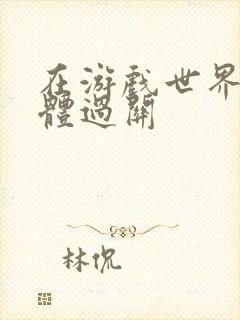 在游戏世界
體過關
林侃